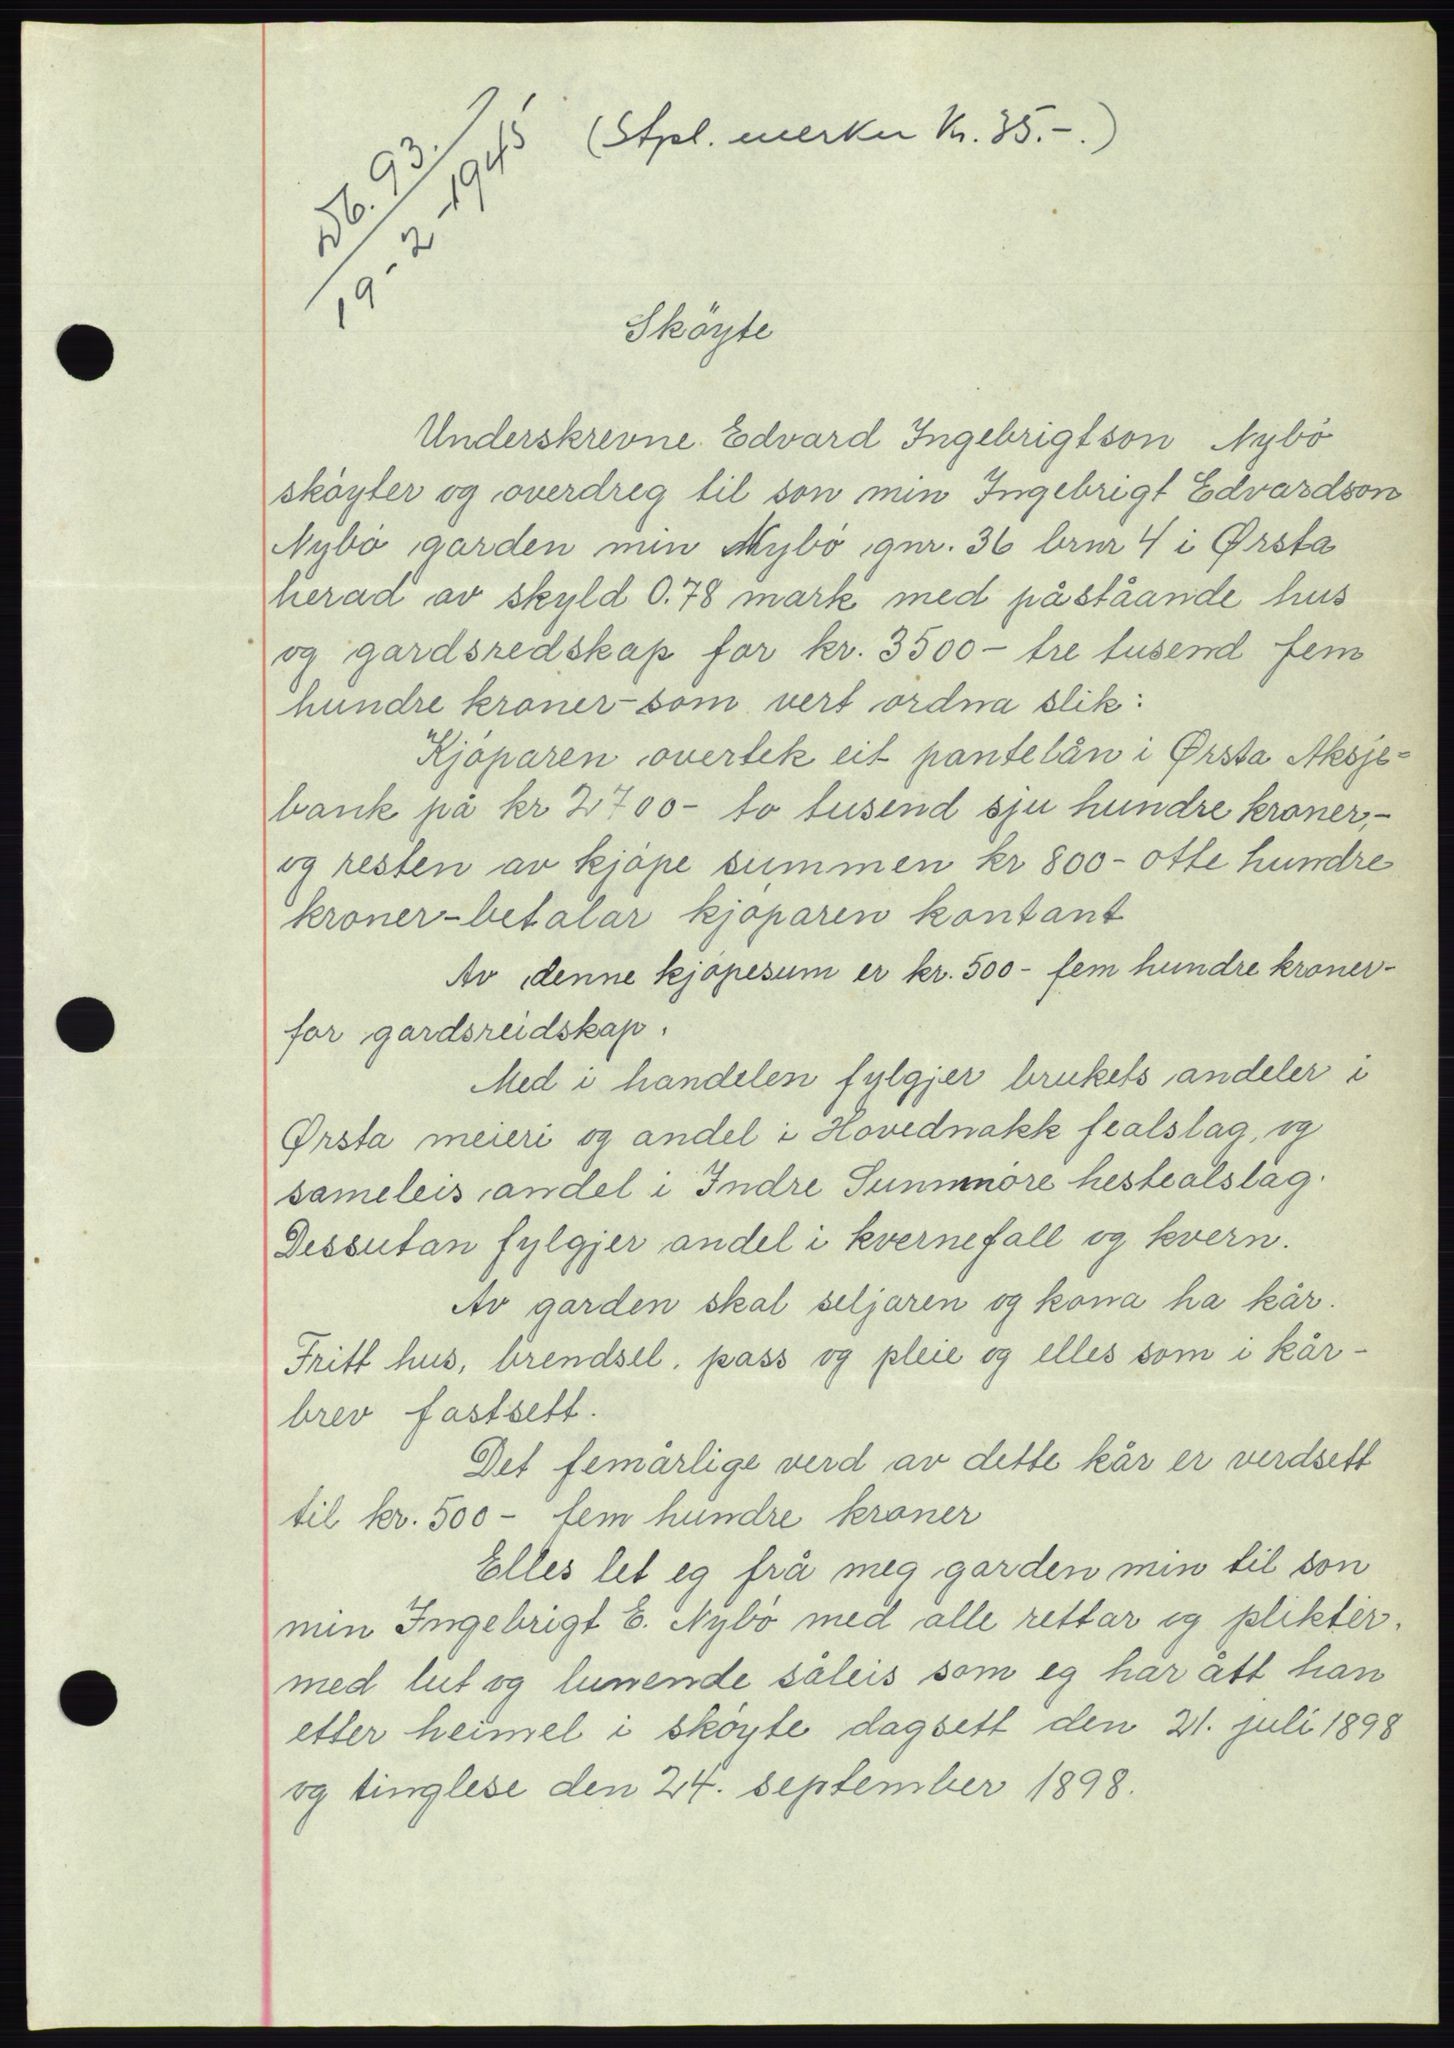 Db. 93.
19-2-1945
(Stpl. merker Kr. 35.-.)
Sköyte
Underskrevne Edvard Ingebrigtson Nybö
sköyter og overdreg til son min Ingebrigt Edvardson
Nybö garden min Nybö gnr. 36 brnr 4 i Ørsta
herad av skyld 0.78 mark med påståande hus
og gardsredskap for kr. 3500- tre tusend fem
hundre kroner-som vert ordna slik:
Kjöparen overtek eit pantelån i Ørsta Aksje=
bank på kr 2700- to tusend sju hundre kroner,-
og resten av kjöpe summen kr 800- otte hundre
kroner-betalar kjöparen kontant
Av denne kjöpesum er kr. 500- fem hundre kroner-
for gardsreidskap.
Med i handelen fylgjer brukets andeler i
Ørsta meieri og andel i Hovednakk fealslag, og
sameleis andel i Indre Sunnmöre hestealslag.
Dessutan fylgjer andel i kvernefall og kvern.
Av garden skal seljaren og kona ha kår.
Fritt hus, brendsel, pass og pleie og elles som i kår-
brev fastsett.
Det femårlige verd av dette kår er verdsett
til kr. 500- fem hundre kroner
Elles let eg frå meg garden min til son
min Ingebrigt E. Nybö med alle rettar og plikter.
med lut og lunende såleis som eg har ått han
etter heimel i sköyte dagsett den 21. juli 1898
og tinglese den 24. september 1898.